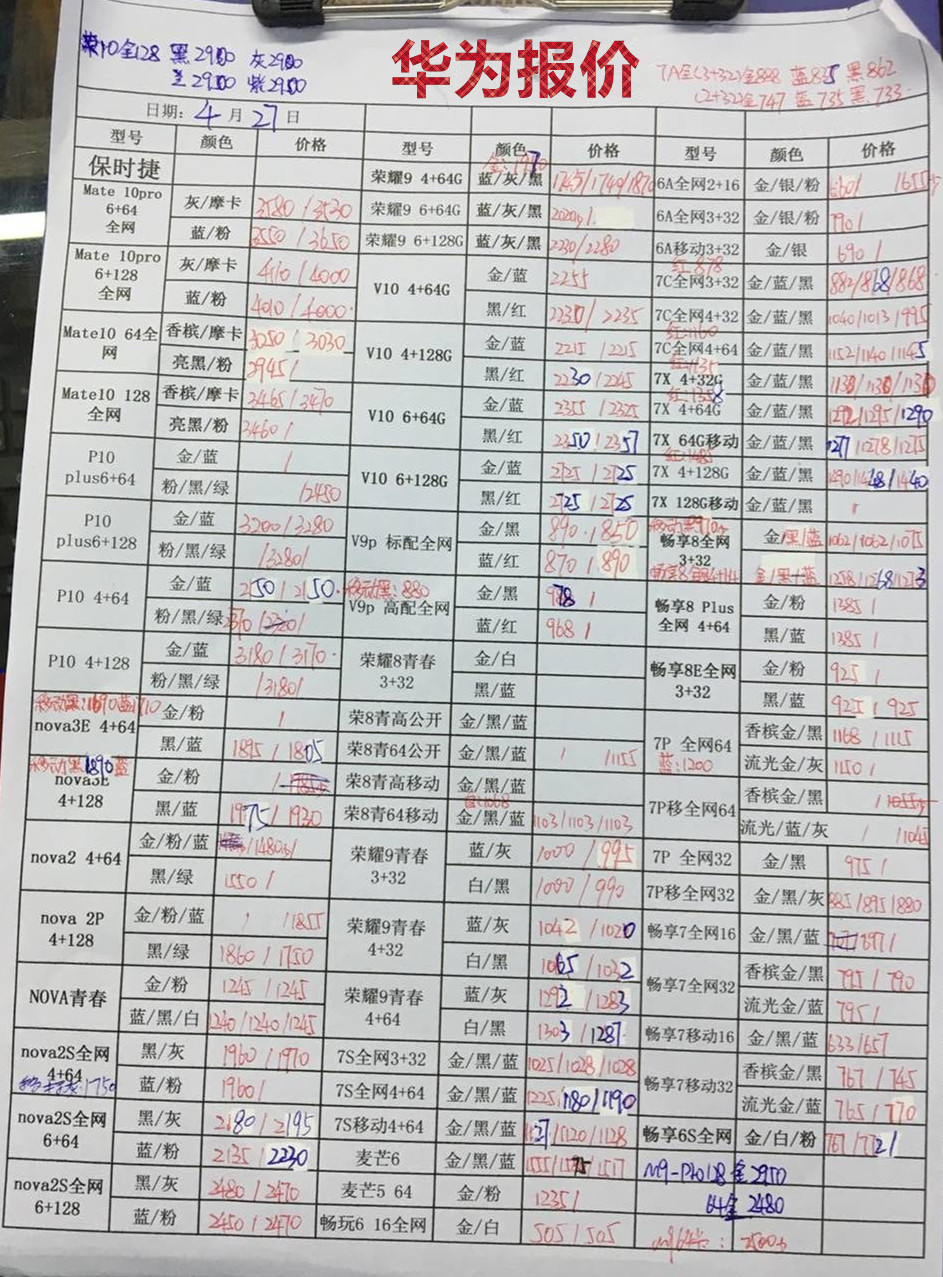 华为报价
荣10全128 黑2900 灰2900
兰2900 紫2900
7A全(3+32)金888 蓝835 黑862
(2+32)金747 蓝735 黑733
日期: 4 月 27 日
型号 颜色 价格 型号 颜色 价格 型号 颜色 价格
保时捷 荣耀9 4+64G 蓝/灰/黑 6A全网2+16 金/银/粉
Mate 10pro 6+64 全网 灰/摩卡 3580/3530 荣耀9 6+64G 蓝/灰/黑 6A全网3+32 金/银/粉 790/
蓝/粉 3550/3650 荣耀9 6+128G 蓝/灰/黑 2230/2280 6A移动3+32 金/银 690/
Mate 10pro 6+128 全网 灰/摩卡 4110/4000 V10 4+64G 金/蓝 2255 红:878 7C全网3+32 金/蓝/黑 882/868/868
蓝/粉 4010/4000 黑/红 2235 7C全网4+32 金/蓝/黑 1040/1013/995
Mate10 64全网 香槟/摩卡 3050 3030 V10 4+128G 金/蓝 2215/2215 红:1160 7C全网4+64 金/蓝/黑 1152/1140/1145
亮黑/粉 2945/ 黑/红 2230/2245 红:1135 7X 4+32G 金/蓝/黑 1130/1130/1130
Mate10 128全网 香槟/摩卡 3465/3470 V10 6+64G 金/蓝 2355/2325 7X 4+64G 金/蓝/黑 1290
亮黑/粉 3460/ 黑/红 2350/2357 7X 64G移动 金/蓝/黑 1277/1278/1275
P10 plus6+64 金/蓝 / V10 6+128G 金/蓝 2725/2725 红:1485 7X 4+128G 金/蓝/黑 1440
粉/黑/绿 /2450 黑/红 2725/2725 7X 128G移动 金/蓝/黑
P10 plus6+128 金/蓝 3200/3280 V9p 标配全网 金/黑 890/850 畅享8全网 3+32 金/黑/蓝 1062/1062/1075
粉/黑/绿 /3280/ 蓝/红 870/890 金/黑/蓝 1258/1268/1273
P10 4+64 金/蓝 移动黑:880 V9p 高配全网 金/黑 978/ 畅享8 Plus 全网 4+64 金/粉 1385/
粉/黑/绿 蓝/红 968/ 黑/蓝 1385/
P10 4+128 金/蓝 3180/3170 荣耀8青春 3+32 金/白 畅享8E全网 3+32 金/粉 925/
粉/黑/绿 /3180/ 黑/蓝 黑/蓝 925/925
nova3E 4+64 金/粉 / 荣8青高公开 金/黑/蓝 7P 全网64 蓝:1200 香槟金/黑 1168/1115
黑/蓝 1895/1805 荣8青64公开 金/黑/蓝 / /1155 流光金/灰 1150/
nova3E 4+128 金/粉 荣8青高移动 金/黑/蓝 7P移全网64 香槟金/黑
黑/蓝 1975/1930 荣8青64移动 金/黑/蓝 1103/1103/1103 流光/蓝/灰 / /1045
nova2 4+64 金/粉/蓝 荣耀9青春 3+32 蓝/灰 1000/995 7P 全网32 金/黑 975/
黑/绿 1550/ 白/黑 1000/990 7P移全网32 金/黑/灰 885/895/880
nova 2P 4+128 金/粉/蓝 / /1855 荣耀9青春 4+32 蓝/灰 1042/1020 畅享7全网16 金/黑/蓝
黑/绿 1860/1750 白/黑 1065/1032 畅享7全网32 香槟金/黑 795/790
NOVA青春 金/粉 1245/1245 荣耀9青春 4+64 蓝/灰 1292/1283 流光金/蓝 795/
蓝/黑/白 1240/1240/1245 白/黑 1303/1287 畅享7移动16 金/黑/蓝 633/657
nova2S全网 4+64 黑/灰 1960/1970 7S全网3+32 金/黑/蓝 1025/1028/1028 畅享7移动32 香槟金/黑 767/745
蓝/粉 1960/ 7S全网4+64 金/黑/蓝 1225/1180/1190 流光金/蓝 765/770
nova2S全网 6+64 黑/灰 2180/2195 7S移动4+64 金/黑/蓝 1127/1120/1128 畅享6S全网 金/白/粉 767/772/
蓝/粉 2135/2230 麦芒6 金/黑/蓝 M9-Pro128 金2950
nova2S全网 6+128 黑/灰 2480/2470 麦芒5 64 金/粉 1235/ 64金 2480
蓝/粉 2450/2470 畅玩6 16全网 金/白 505/505